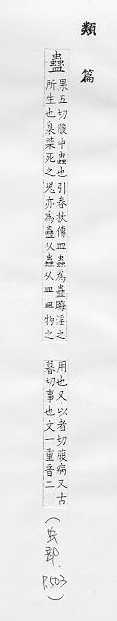 類篇
蠱
果五切腹中蟲也引春秋傳皿蟲為蠱晦淫之
所生也梟桀死之鬼亦為蠱从蟲从皿皿物之
用也又以者切腹病又古
暮切事也文一重音二
(虫部.P.503)